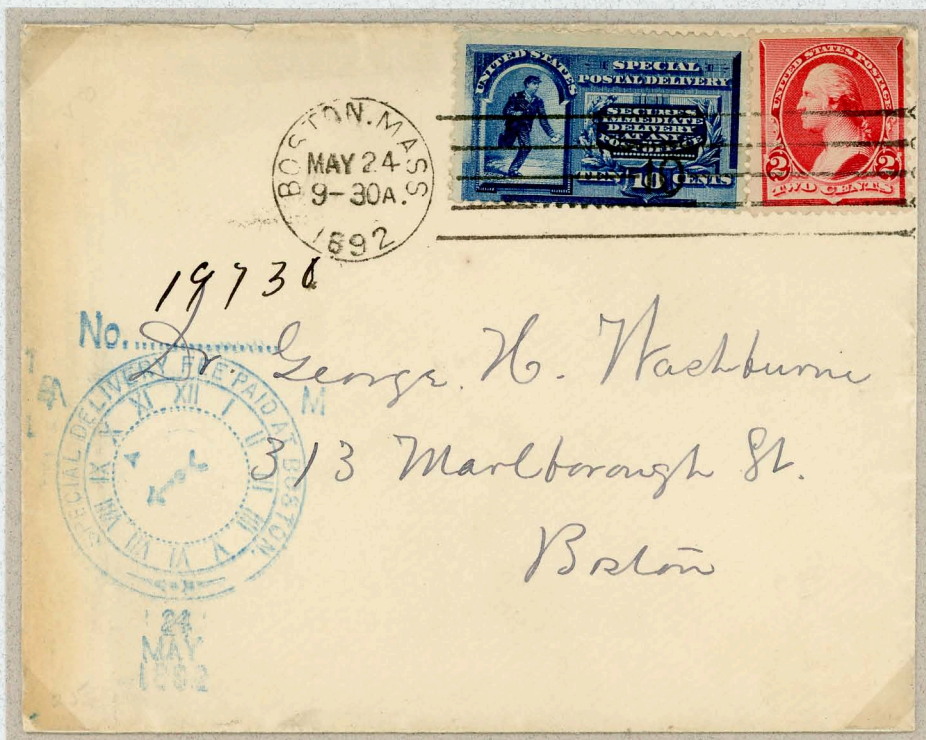 UNITED STATES
SPECIAL
POSTAL DELIVERY
SECURES
IMMEDIATE
DELIVERY
AT ANY
TEN 10 CENTS
UNITED STATES POSTAGE
2 2
TWO CENTS
BOSTON. MASS
MAY 24
9-30A.
1892
No.
Dr. George H. Washburne
313 Marlborough St.
Boston
SPECIAL DELIVERY FEE PAID AT BOSTON
M
XII I II III V VI VII VIII IX X XI
A
24
MAY
1892